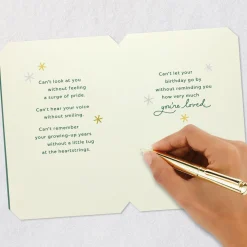 Can't look at you
without feeling
a surge of pride.
Can't hear your voice
without smiling.
Can't remember
your growing-up years
without a little tug
at the heartstrings.
Can't let your
birthday go by
without reminding you
how very much
you're loved.